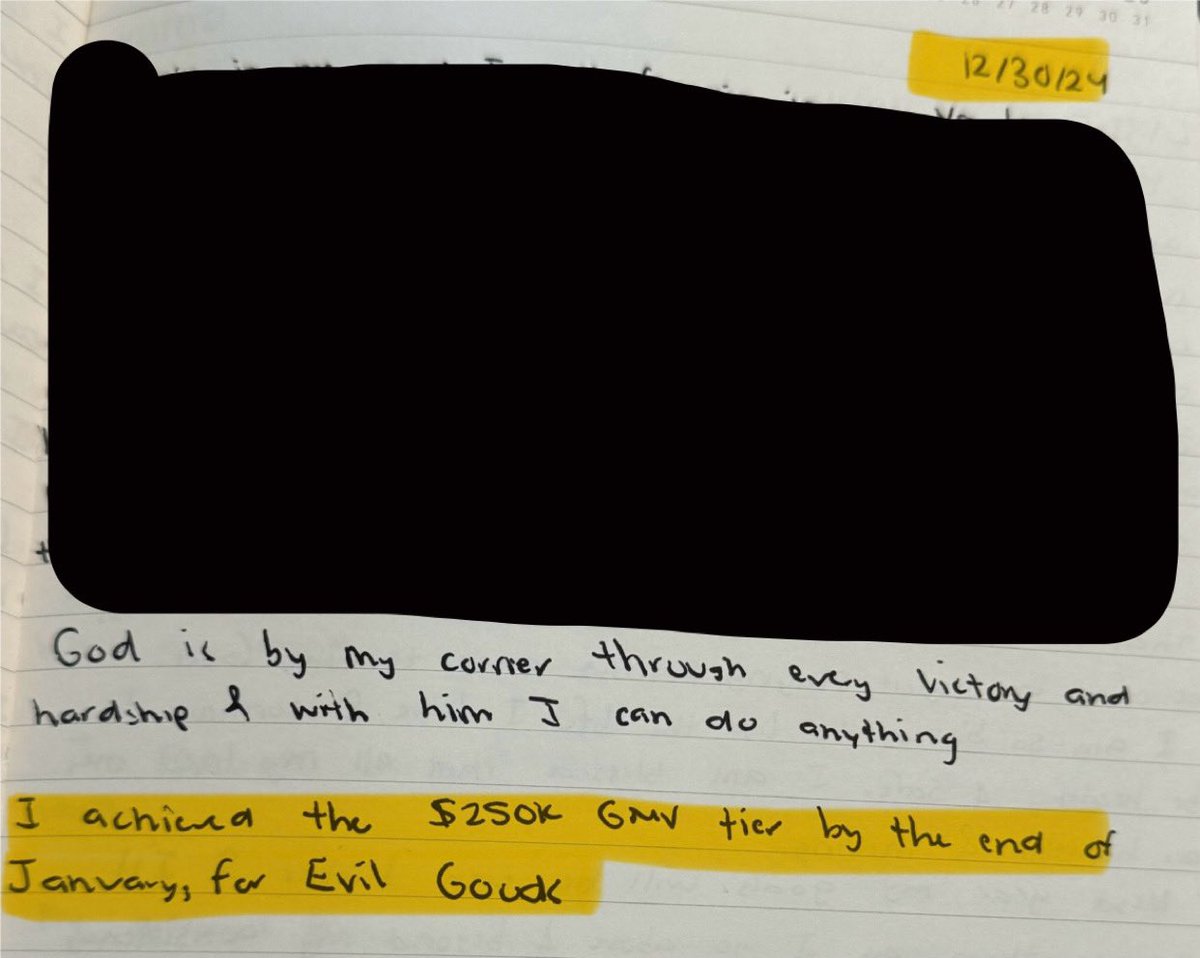 27 28 29 30 31
12/30/24
God is by my corner through every victory and
hardship & with him I can do anything
I achieved the $250K GMV tier by the end of
January, for Evil Goods